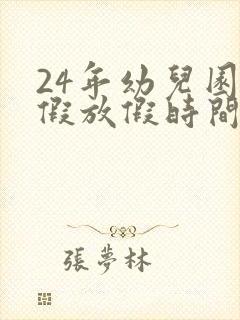 24年幼兒園
假放假時間
張夢林